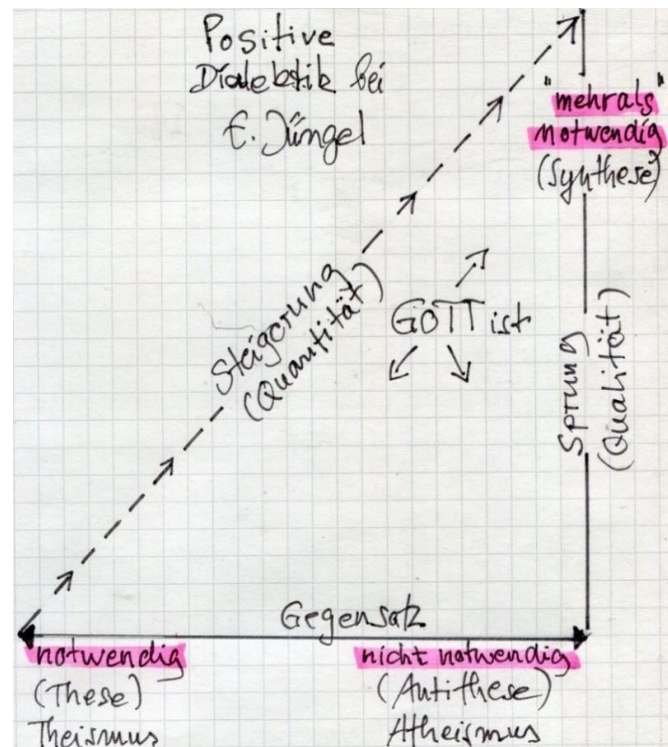 Positive
Dialektik bei
E. Jüngel
"mehr als
notwendig"
(Synthese)
Steigerung
(Quantität)
GOTT ist
Sprung
(Qualität)
Gegensatz
notwendig
(These)
Theismus
nicht notwendig
(Antithese)
Atheismus